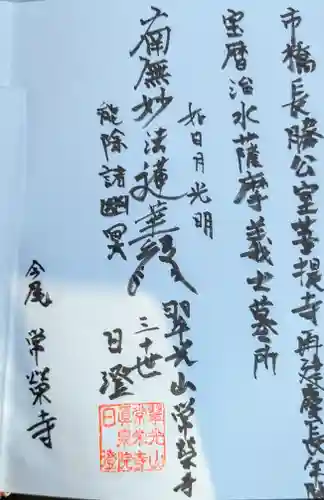 市橋長勝公室菩提寺再建慶長年間
宝暦治水薩摩義士墓所
如日月光明
南無妙法蓮華経
能除諸幽冥
翠光山常榮寺
三十世
日澄
今尾 常榮寺